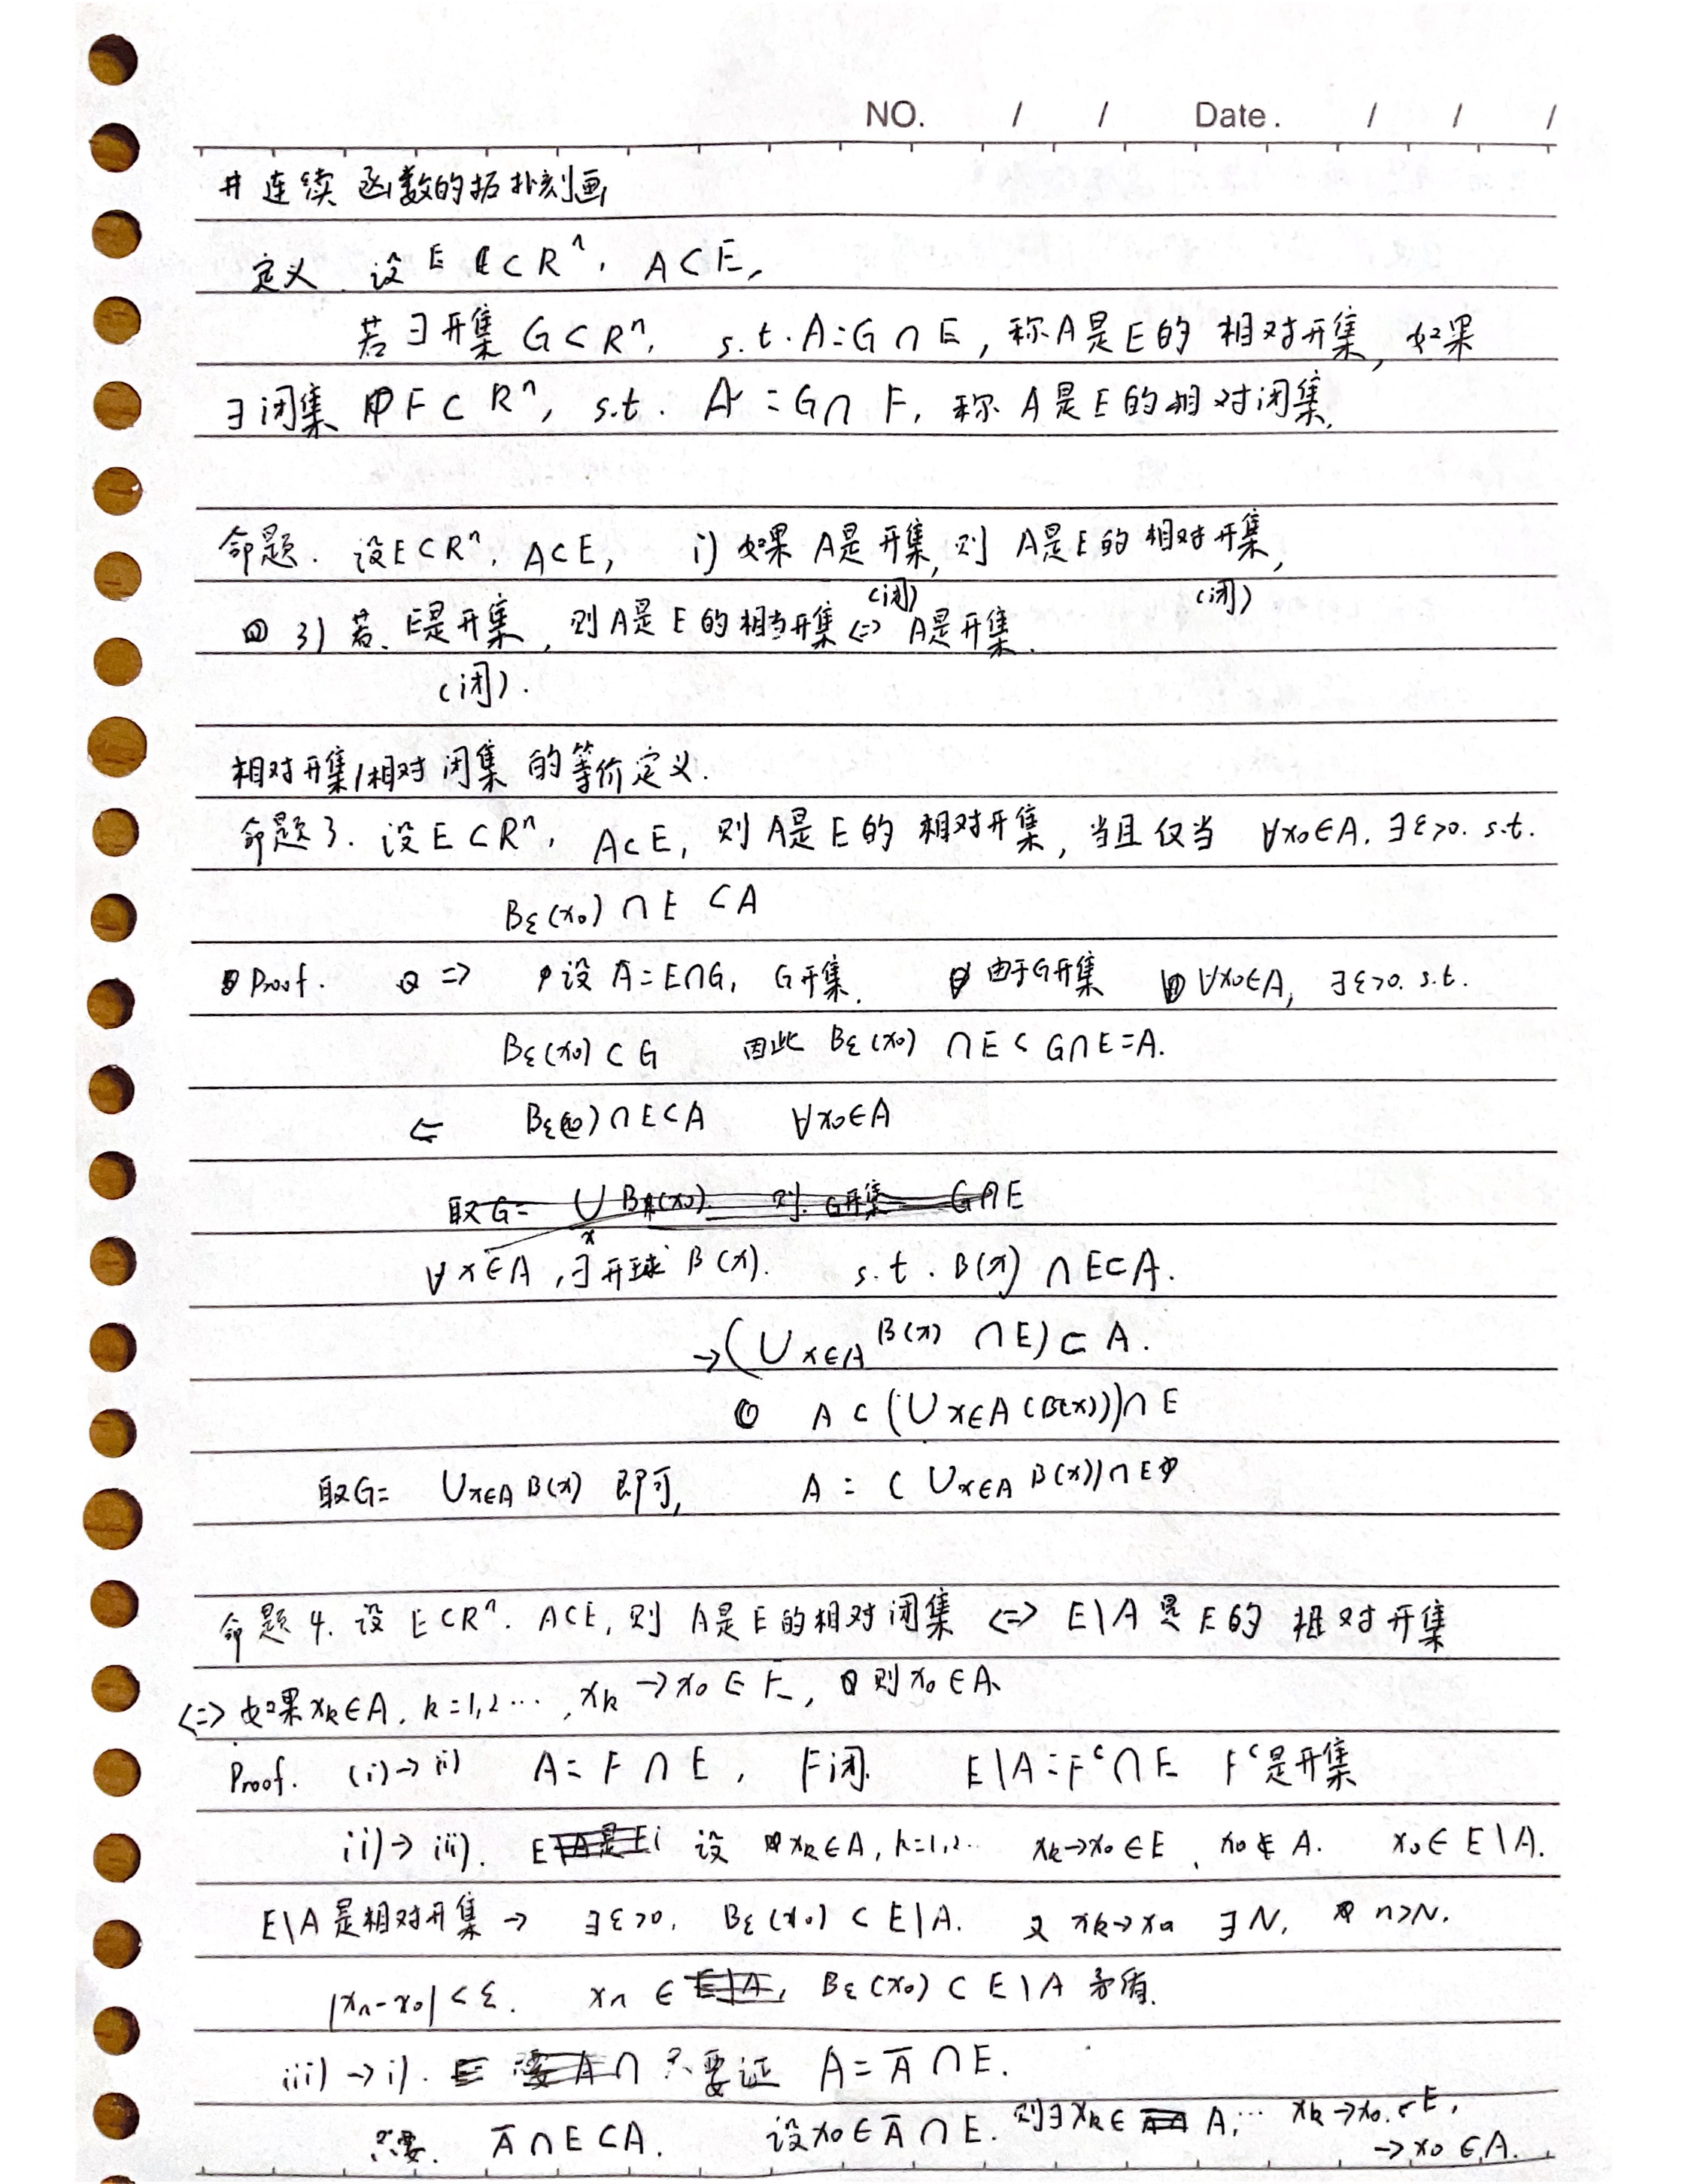 NO. / / Date. / / /
# 连续函数的拓扑刻画
定义. 设 E ⊂ Rⁿ, A ⊂ E,
若∃开集 G ⊂ Rⁿ, s.t. A = G ∩ E, 称A是E的相对开集, 如果
∃闭集 F ⊂ Rⁿ, s.t. A = G ∩ F, 称 A是E的相对闭集.
命题. 设E ⊂ Rⁿ, A ⊂ E, i) 如果 A是开集, 则 A是E的相对开集,
(闭) (闭)
3) 若. E是开集, 则A是E的相当开集 <=> A是开集.
(闭).
相对开集/相对闭集的等价定义.
命题3. 设E ⊂ Rⁿ, A ⊂ E, 则A是E的相对开集, 当且仅当 ∀x₀∈A, ∃ε>0. s.t.
Bε(x₀) ∩ E ⊂ A
Proof. => 设 A = E∩G, G开集. 由于G开集 ∀x₀∈A, ∃ε>0. s.t.
Bε(x₀) ⊂ G 因此 Bε(x₀) ∩ E ⊂ G∩E = A.
<= Bε(x₀) ∩ E ⊂ A ∀x₀∈A
取G= ∪ₓ B(x₀). 则. G开集 G∩E
∀x∈A, ∃开球 B(x). s.t. B(x) ∩ E ⊂ A.
→ (∪x∈A B(x) ∩ E) ⊂ A.
A ⊂ (∪x∈A (B(x))) ∩ E
取G= ∪x∈A B(x) 即可, A = (∪x∈A B(x)) ∩ E
命题4. 设 E ⊂ Rⁿ. A ⊂ E, 则 A是E的相对闭集 <=> E\A 是 E的相对开集
<=> 如果xₖ∈A, k=1,2…, xₖ→x₀∈E, 则x₀∈A.
Proof. (i)→ii) A = F ∩ E, F闭. E\A = Fᶜ∩E Fᶜ是开集
ii)→iii). E\A是E 设 xₖ∈A, k=1,2… xₖ→x₀∈E, x₀∉A. x₀∈E\A.
E\A是相对开集 → ∃ε>0, Bε(x₀) ⊂ E\A. 又 xₖ→x₀ ∃N, n>N,
|xₙ-x₀|<ε. xₙ ∈ E\A, Bε(x₀) ⊂ E\A 矛盾.
iii)→i). 要 A∩ 只要证 A = A̅ ∩ E.
只要. A̅ ∩ E ⊂ A. 设x₀∈A̅ ∩ E. 则∃xₖ∈ A,… xₖ→x₀∈E,
→x₀∈A.